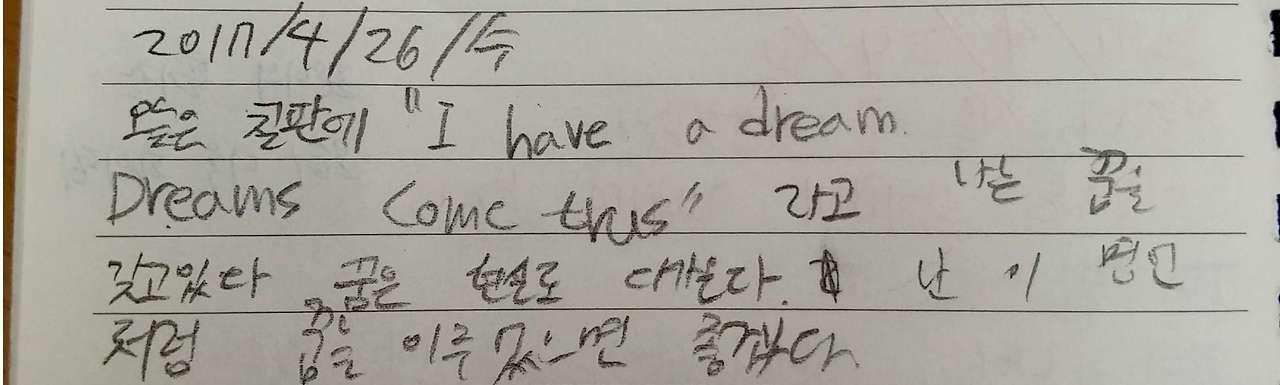 2017/4/26/수
오늘은 칠판에 "I have a dream.
Dreams come trus" 라고 나는 꿈을
갖고있다 꿈은 현실로 다가온다. 난 이 명언
처럼 꿈을 이루었으면 좋겠다.